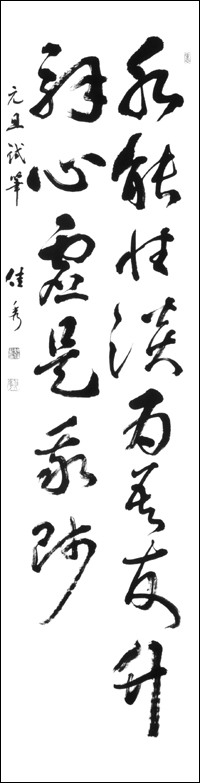 水能性淡為吾友竹
解心虛是我師
元旦試筆 佳秀